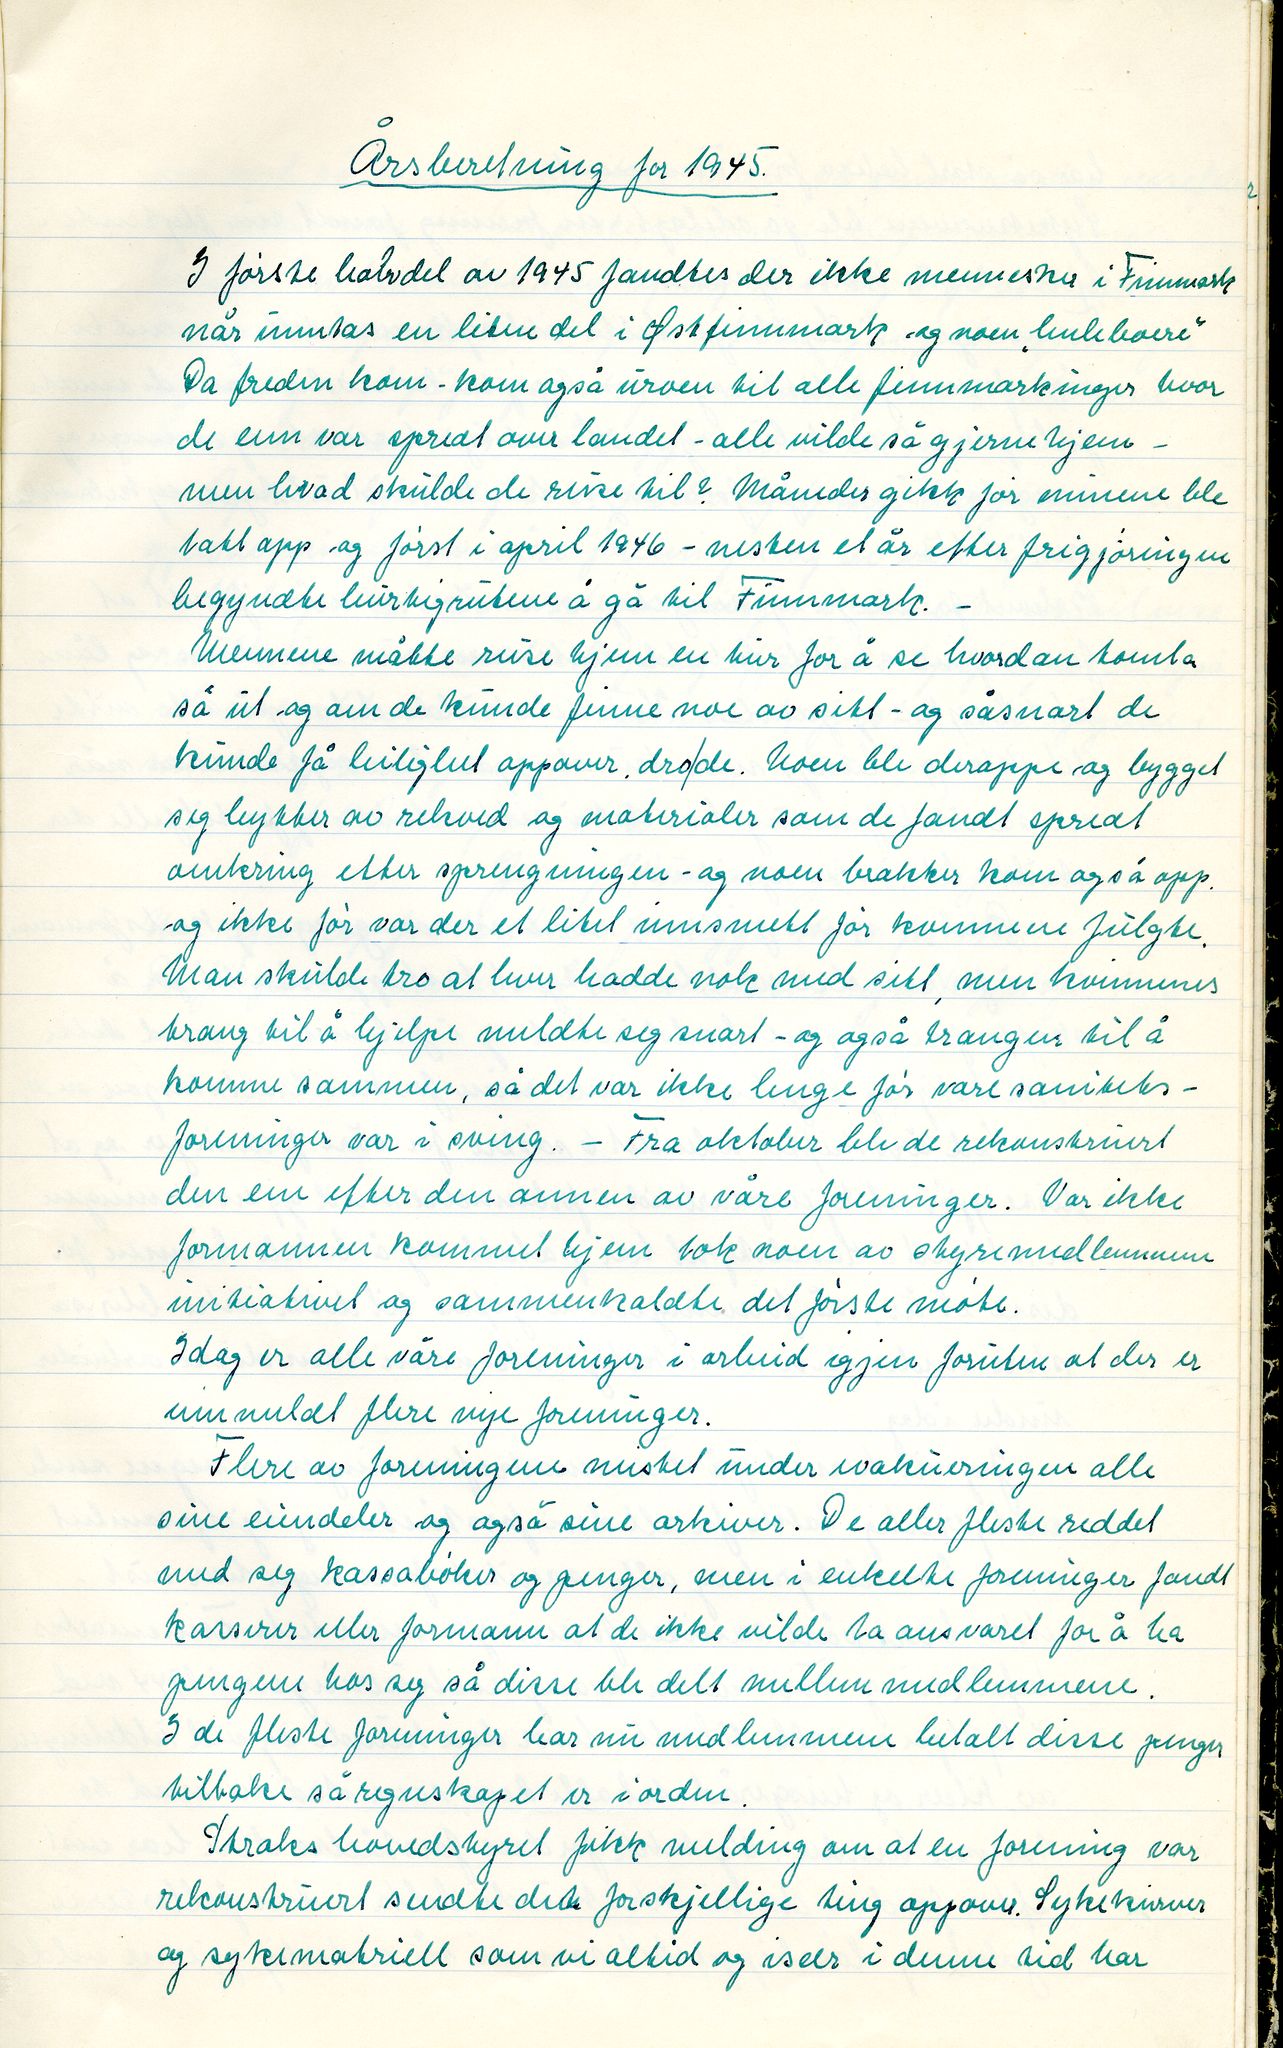 Årsberetning for 1945.
I første halvdel av 1945 fandtes der ikke mennesker i Finnmark
når unntas en liten del i Østfinnmark og noen „huleboere"
Da freden kom - kom også uroen til alle finnmarkinger hvor
de enn var spredt over landet - alle vilde så gjerne hjem -
men hvad skulde de reise til? Måneder gikk før minene ble
tatt opp og først i april 1946 - nesten et år efter frigjøringen
begyndte hurtigrutene å gå til Finnmark. -
Mennene måtte reise hjem en tur for å se hvordan tomta
så ut og om de kunde finne noe av sitt - og såsnart de
kunde få leilighet oppover, dro de. Noen ble deroppe og bygget
seg hytter av rekved og materialer som de fandt spredt
omkring etter sprengningen - og noen brakker kom også opp.
og ikke før var der et litet innsmett før kvinnene fulgte.
Man skulde tro at hver hadde nok med sitt, men kvinnenes
trang til å hjelpe meldte seg snart - og også trangen til å
komme sammen, så det var ikke lenge før våre sanitets-
foreninger var i sving. - Fra oktober ble de rekonstruert
den ene efter den annen av våre foreninger. Var ikke
formannen kommet hjem tok noen av styremedlemmene
initiativet og sammenkaldte det første møte.
Idag er alle våre foreninger i arbeid igjen foruten at der er
innmeldt flere nye foreninger.
Flere av foreningene mistet under evakueringen alle
sine eiendeler og også sine arkiver. De aller fleste reddet
med seg kassabøker og penger, men i enkelte foreninger fandt
kasserer eller formann at de ikke vilde ta ansvaret for å ha
pengene hos seg så disse ble delt mellem medlemmene.
I de fleste foreninger har nu medlemmene betalt disse penger
tilbake så regnskapet er i orden.
Straks hovedstyret fikk melding om at en forening var
rekonstruert sendte det forskjellige ting oppover. Sykekurver
og sykemateriell som vi altid og især i denne tid har